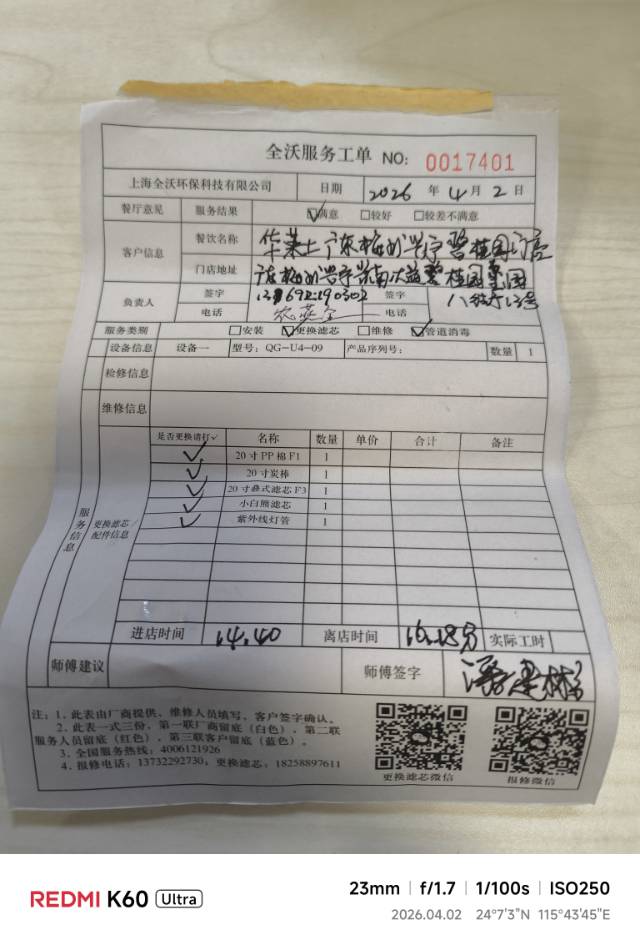 全沃服务工单 NO: 0017401
上海全沃环保科技有限公司 日期 2026 年 4 月 2 日
餐厅意见 服务结果 ☑满意 □较好 □较差不满意
客户信息 餐饮名称 华莱士广东梅州兴宁碧桂园门店
门店地址 广东梅州兴宁 碧桂园
负责人 签字 签字
电话 电话
服务类别 □安装 ☑更换滤芯 □维修 ☑管道消毒
设备信息 设备一 型号: QG-U4-09 产品序列号: 数量 1
检修信息
维修信息
服务信息 更换滤芯/配件信息
是否更换请打√ 名称 数量 单价 合计 备注
✓ 20寸PP棉F1 1
✓ 20寸炭棒 1
✓ 20寸叠式滤芯F3 1
✓ 小白熊滤芯 1
✓ 紫外线灯管 1
进店时间 14.40 离店时间 16.18分 实际工时
师傅建议 师傅签字
注: 1、此表由厂商提供、维修人员填写、客户签字确认。
2、此表一式三份，第一联厂商留底（白色），第二联
服务人员留底（红色），第三联客户留底（蓝色）。
3、全国服务热线: 4006121926
4、报修电话: 13732292730, 更换滤芯: 18258897611
更换滤芯微信 报修微信
REDMI K60 Ultra
23mm | f/1.7 | 1/100s | ISO250
2026.04.02 24°7'3"N 115°43'45"E